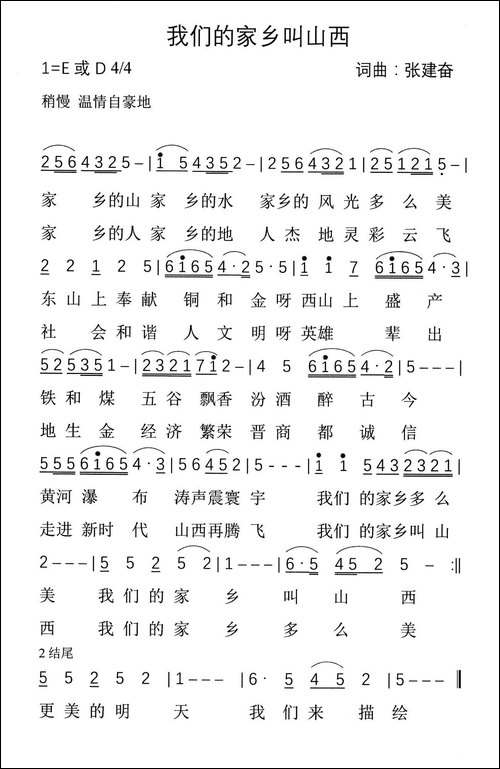 我们的家乡叫山西
1=E 或 D 4/4
词曲：张建奋
稍慢 温情自豪地
2 5 6 4 3 2 5 - | i 5 4 3 5 2 - | 2 5 6 4 3 2 1 | 2 5 1 2 1 5 - |
家 乡的山 家 乡的水 家乡的 风光多么美
家 乡的人 家 乡的地 人杰 地灵彩云飞
2 2 1 2 5 - | 6 i 6 5 4 · 2 5 · 5 | i i 7 6 i 6 5 4 · 3 |
东山上奉献 铜和金呀 西山上 盛产
社会和谐 人文明呀 英雄 辈出
5 2 5 3 5 1 - | 2 3 2 1 7 i 2 - | 4 5 6 i 6 5 4 · 2 | 5 - - - |
铁和煤 五谷 飘香 汾酒 醉古今
地生金 经济 繁荣 晋商 都诚信
5 5 5 6 i 6 5 4 · 3 | 5 6 4 5 2 | 5 - - - | i i 5 4 3 2 3 2 1 |
黄河瀑布 涛声震寰宇 我们的家乡多么
走进新时代 山西再腾飞 我们的家乡叫山
2 - - - | 5 5 2 5 2 | 1 - - - | 6 · 5 4 5 2 5 - :||
美 我们的家乡 叫山西
西 我们的家乡 多么美
2 结尾
5 5 2 5 2 | 1 - - - | 6 · 5 4 5 2 | 5 - - - ||
更美的明天 我们来描绘